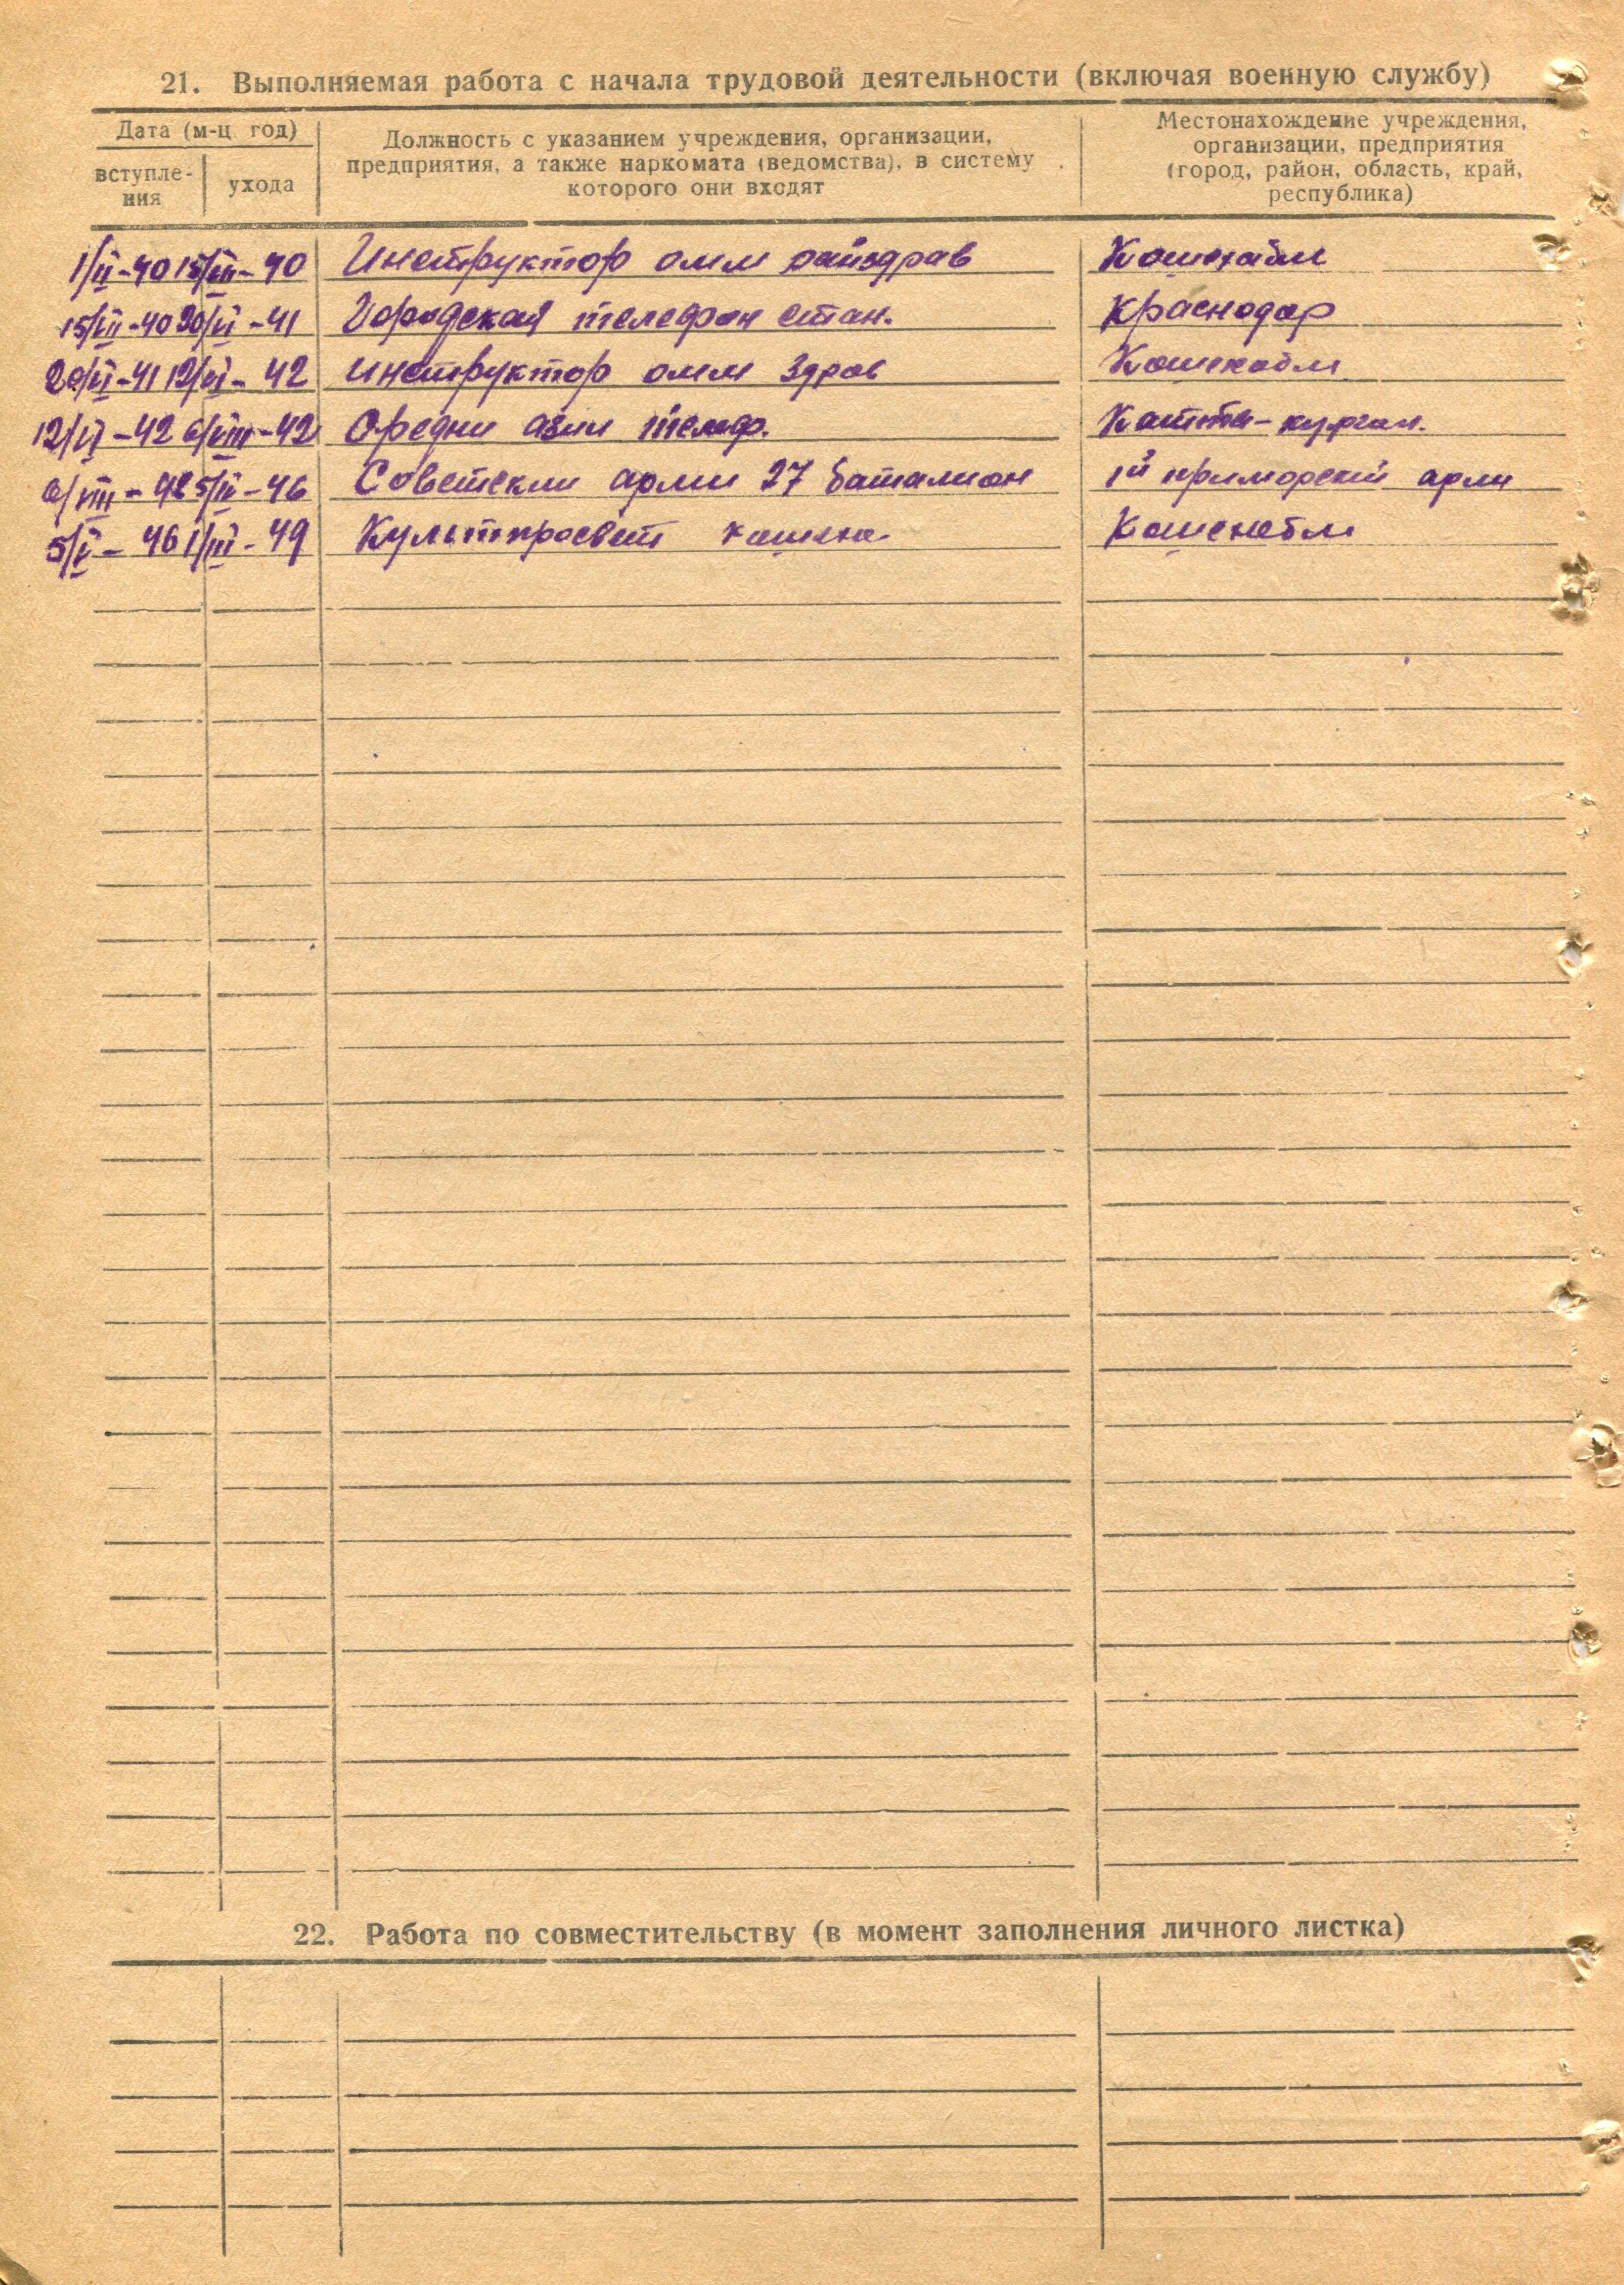 21. Выполняемая работа с начала трудовой деятельности (включая военную службу)
Дата (м-ц год)
вступле-
ния
ухода
Должность с указанием учреждения, организации,
предприятия, а также наркомата (ведомства), в систему
которого они входят
Местонахождение учреждения,
организации, предприятия
(город, район, область, край,
республика)
1/II-40 15/VII-40 Инструктор омм райздрав Кошехабль
15/VII-40 20/VI-41 Городская телефон стан. Краснодар
20/VI-41 12/VI-42 Инструктор омм здрав Кошехабль
12/VI-42 6/VIII-42 Средни азии телеф. Катты-курган.
6/VIII-42 5/V-46 Советскии арми 27 баталион 1й приморский арми
5/V-46 1/III-49 Культпросвет Кошехабль
22. Работа по совместительству (в момент заполнения личного листка)